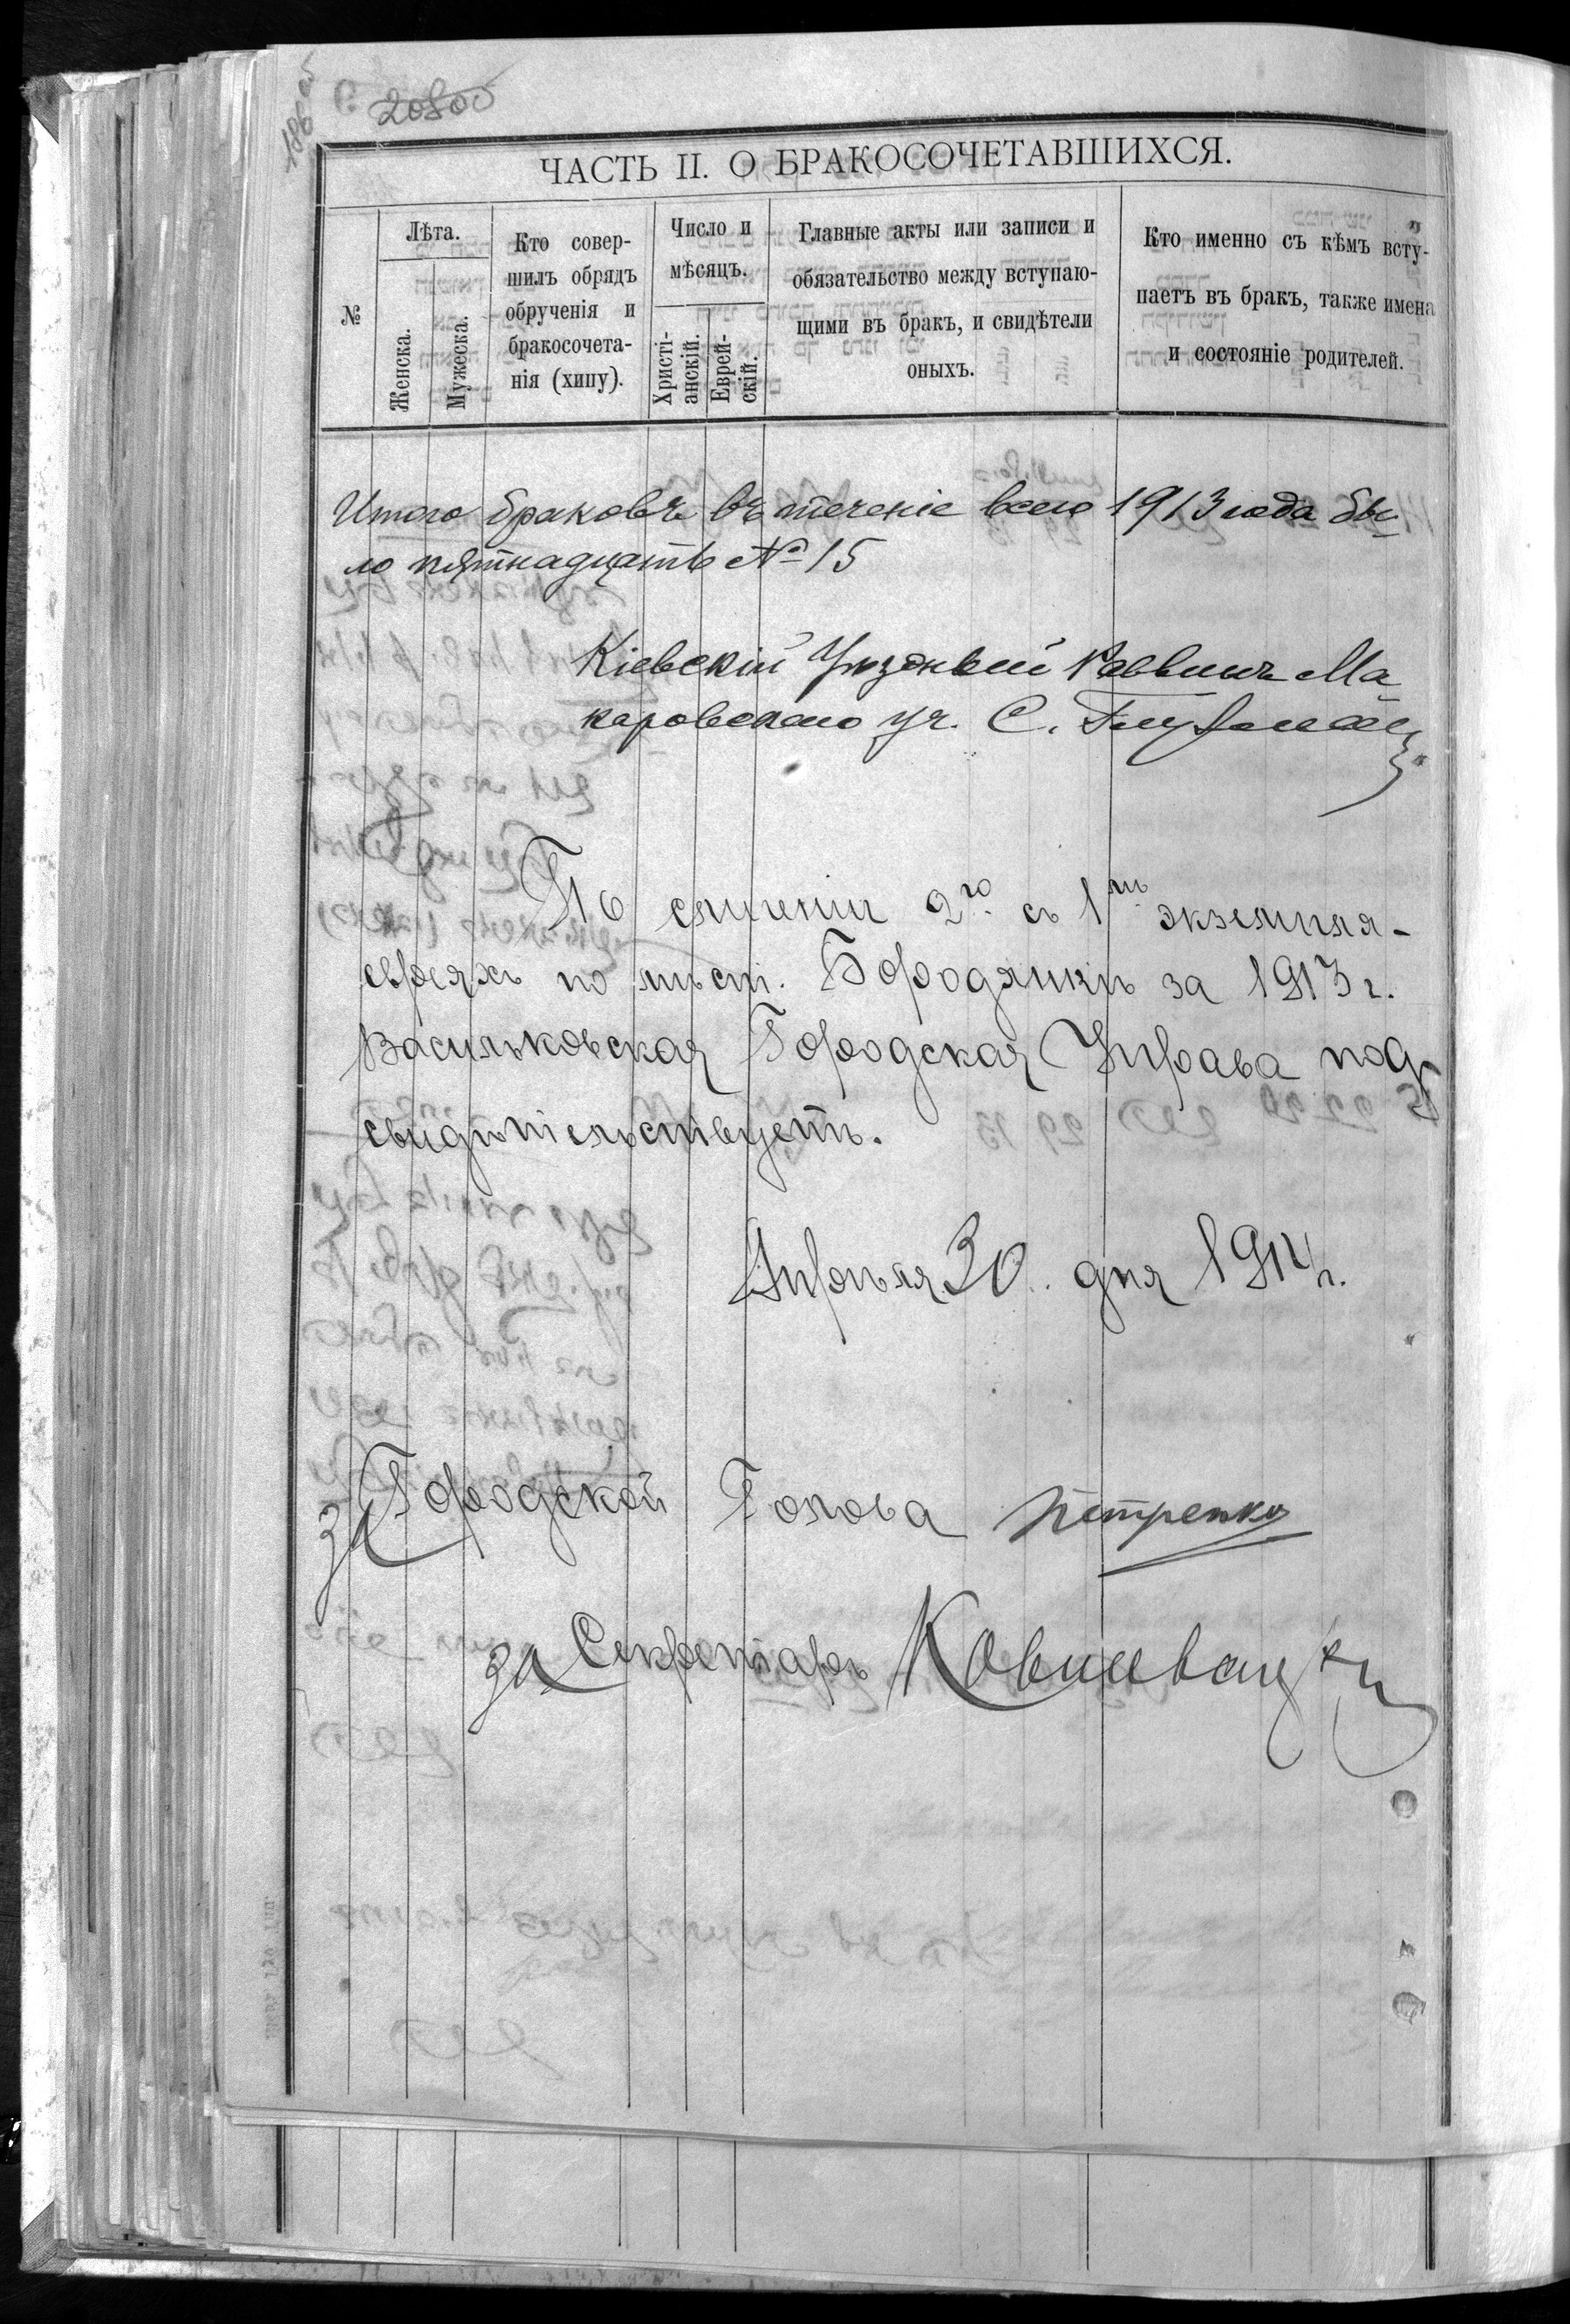 186 об
208об
ЧАСТЬ II. О БРАКОСОЧЕТАВШИХСЯ.
№
Лѣта.
Женска.
Мужеска.
Кто совер-
шилъ обрядъ
обрученія и
бракосочета-
нія (хипу).
Число и
мѣсяцъ.
Христі-
анскій.
Еврей-
скій.
Главные акты или записи и
обязательство между вступаю-
щими въ бракъ, и свидѣтели
оныхъ.
Кто именно съ кѣмъ всту-
паетъ въ бракъ, также имена
и состояніе родителей.
Итого браковъ въ теченіе всего 1913 года бы-
ло пятнадцать № 15
Кіевскій Уѣздный Раввинъ Ма-
каровскаго уч. С.
По сличеніи 2го съ 1мъ экземпля-
евреяхъ по мѣст. Бородянкѣ за 1913 г.
Васильковская Городская Управа под-
свидѣтельствуетъ.
Апрѣля 30 дня 1914 г.
За Городской Голова Петренко
За Секретарь